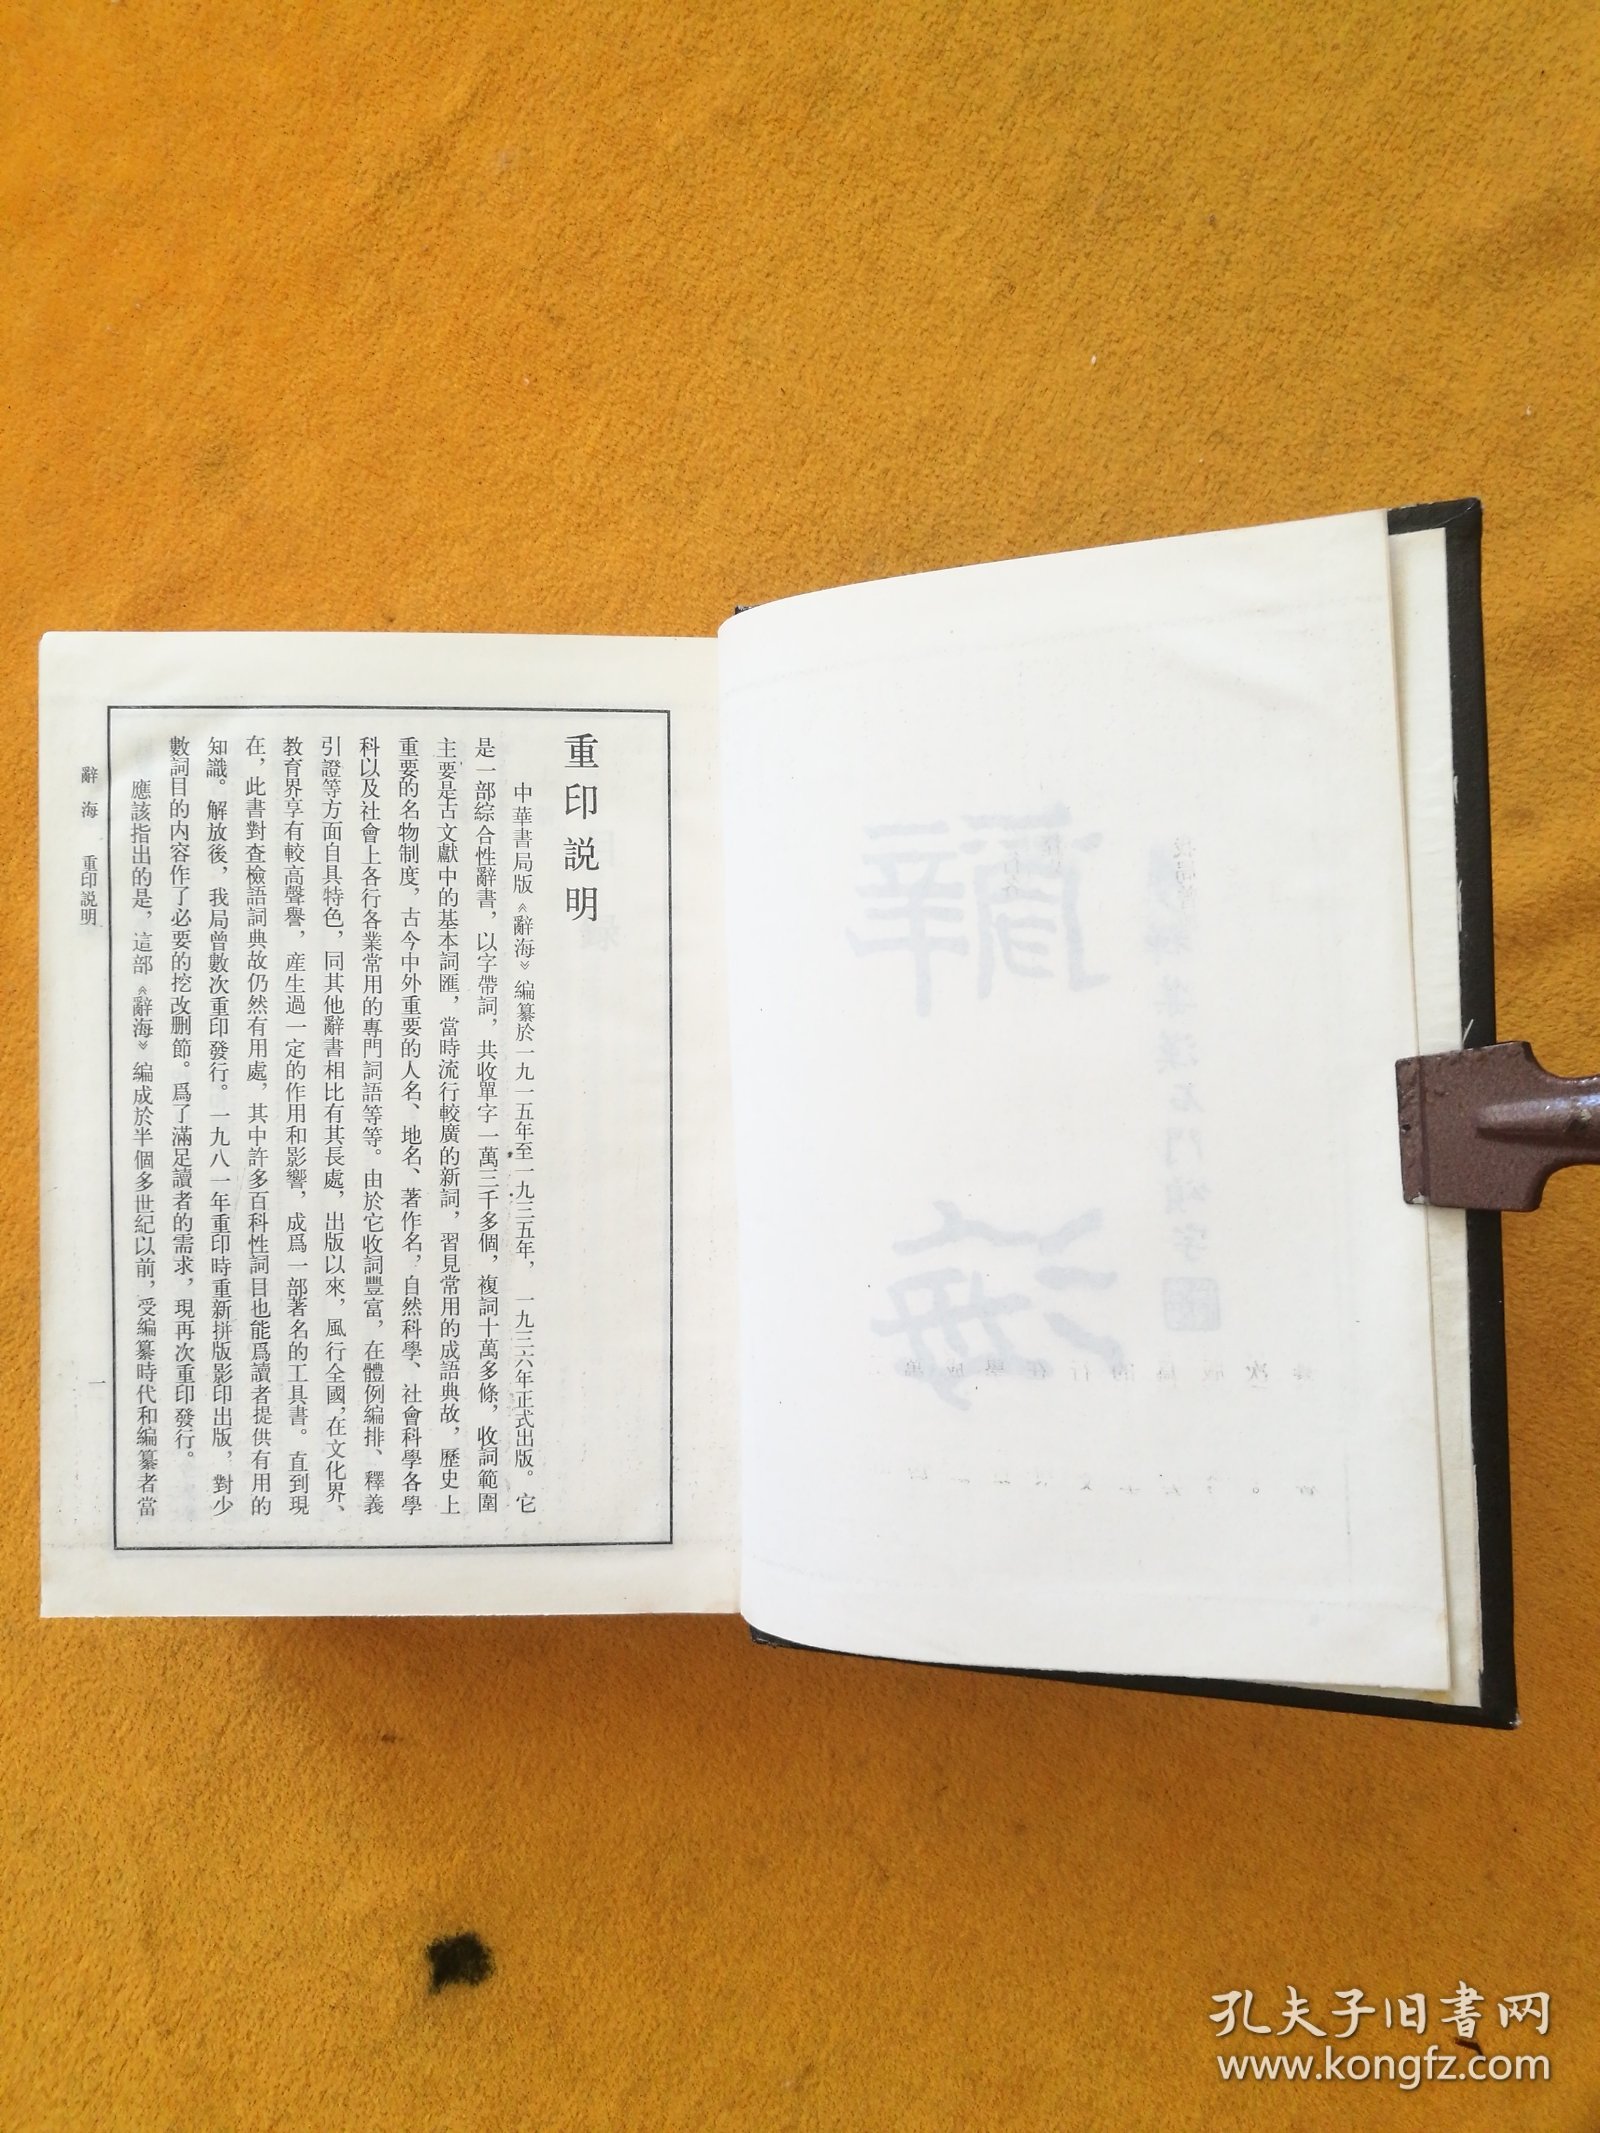 重印説明
中華書局版《辭海》編纂於一九一五年至一九三五年，一九三六年正式出版。它
是一部綜合性辭書，以字帶詞，共收單字一萬三千多個，複詞十萬多條，收詞範圍
主要是古文獻中的基本詞匯，當時流行較廣的新詞，習見常用的成語典故，歷史上
重要的名物制度，古今中外重要的人名、地名、著作名，自然科學、社會科學各學
科以及社會上各行各業常用的專門詞語等等。由於它收詞豐富，在體例編排、釋義
引證等方面自具特色，同其他辭書相比有其長處，出版以來，風行全國，在文化界、
教育界享有較高聲譽，産生過一定的作用和影響，成爲一部著名的工具書。直到現
在，此書對查檢語詞典故仍然有用處，其中許多百科性詞目也能爲讀者提供有用的
知識。解放後，我局曾數次重印發行。一九八一年重印時重新拼版影印出版，對少
數詞目的内容作了必要的挖改删節。爲了滿足讀者的需求，現再次重印發行。
應該指出的是，這部《辭海》編成於半個多世紀以前，受編纂時代和編纂者當
辭海 重印説明
一
孔夫子旧书网
www.kongfz.com